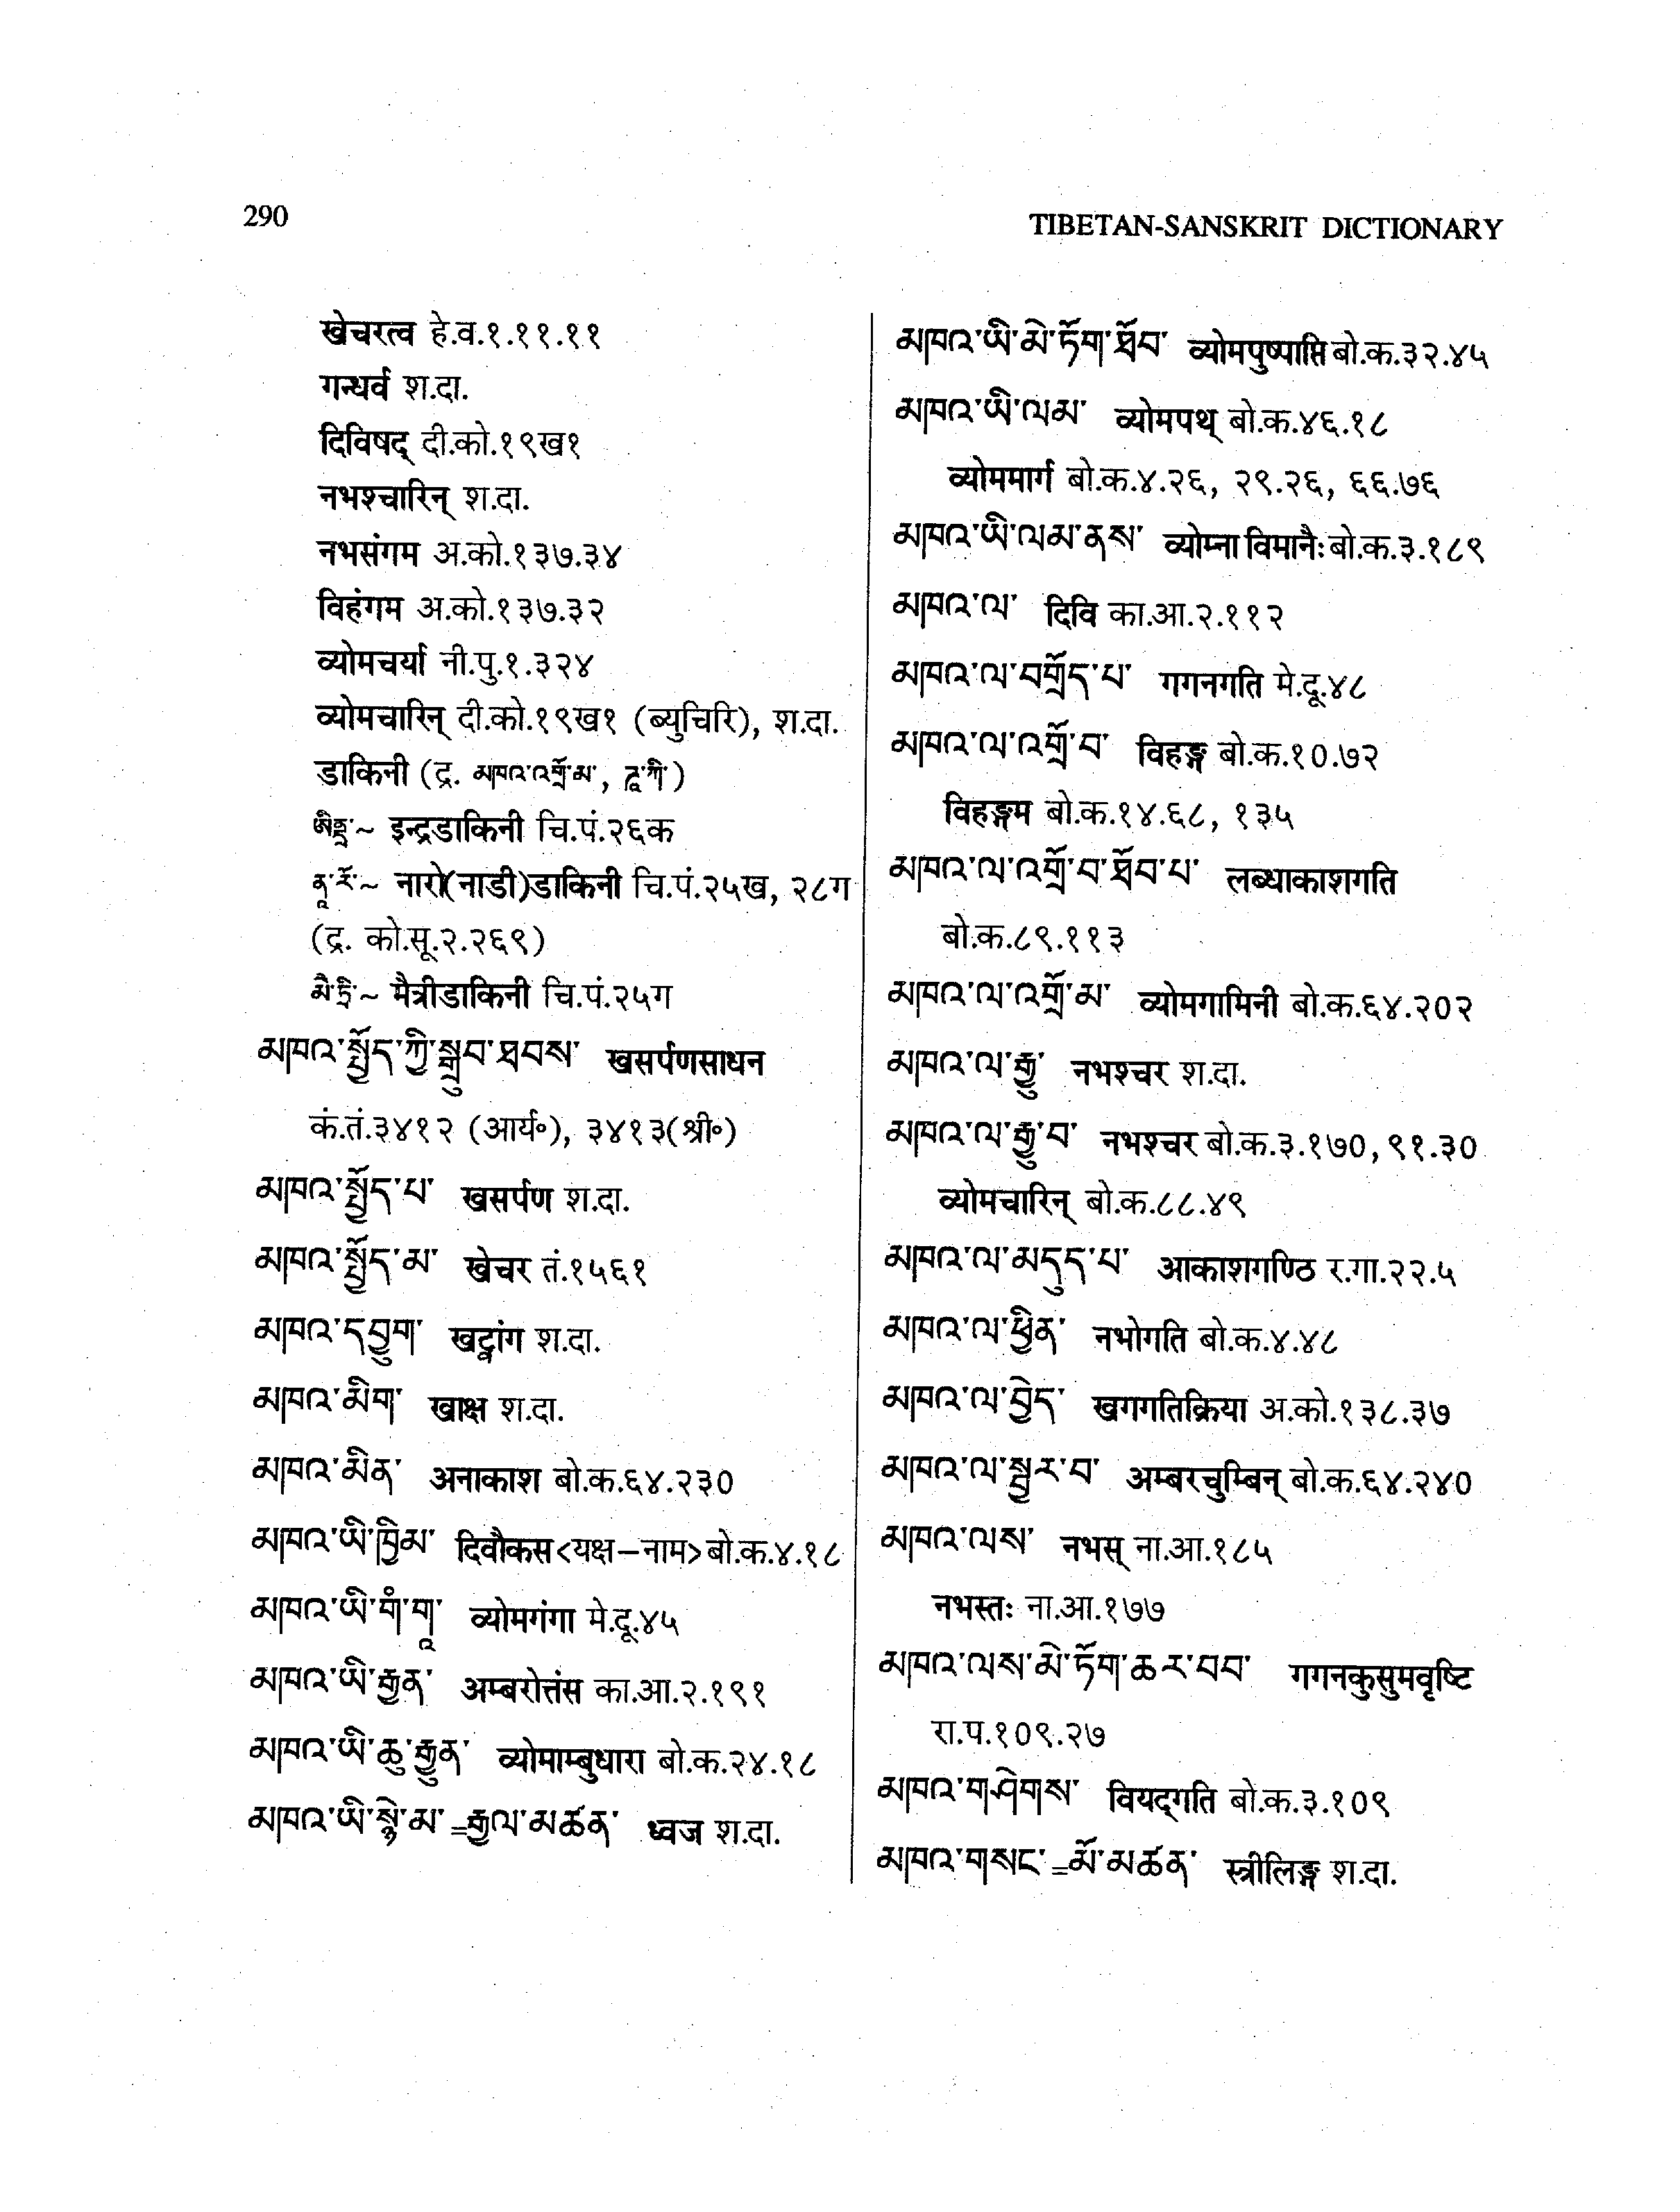 290
TIBETAN-SANSKRIT DICTIONARY
खेचरत्व हे.व.१.११.११
गन्धर्व श.दा.
दिविषद् दी.को.१९ख१
नभश्चारिन् श.दा.
नभसंगम अ.को.१३७.३४
विहंगम अ.को.१३७.३२
व्योमचर्या नी.पु.१.३२४
व्योमचारिन् दी.को.१९ख१ (ब्युचिरि), श.दा.
डाकिनी (द्र. མཁའ་འགྲོ་མ་, ཌཱ་ཀི་)
ཨིནྡྲ་~ इन्द्रडाकिनी चि.पं.२६क
ནཱ་རོ་~ नारो(नाडी)डाकिनी चि.पं.२५ख, २८ग
(द्र. को.सू.२.२६९)
མཻ་ཏྲི་~ मैत्रीडाकिनी चि.पं.२५ग
མཁའ་སྤྱོད་ཀྱི་སྒྲུབ་ཐབས་ खसर्पणसाधन
कं.तं.३४१२ (आर्य॰), ३४१३(श्री॰)
མཁའ་སྤྱོད་པ་ खसर्पण श.दा.
མཁའ་སྤྱོད་མ་ खेचर तं.१५६१
མཁའ་དབྱུག་ खट्वांग श.दा.
མཁའ་མིག་ खाक्ष श.दा.
མཁའ་མིན་ अनाकाश बो.क.६४.२३०
མཁའ་ཡི་ཁྱིམ་ दिवौकस<यक्ष–नाम>बो.क.४.१८
མཁའ་ཡི་གཾ་གཱ་ व्योमगंगा मे.दू.४५
མཁའ་ཡི་རྒྱན་ अम्बरोत्तंस का.आ.२.१९१
མཁའ་ཡི་ཆུ་རྒྱུན་ व्योमाम्बुधारा बो.क.२४.१८
མཁའ་ཡི་སྙེ་མ་=རྒྱལ་མཚན་ ध्वज श.दा.
མཁའ་ཡི་མེ་ཏོག་ཐོབ་ व्योमपुष्पाप्ति बो.क.३२.४५
མཁའ་ཡི་ལམ་ व्योमपथ् बो.क.४६.१८
व्योममार्ग बो.क.४.२६, २९.२६, ६६.७६
མཁའ་ཡི་ལམ་ནས་ व्योम्ना विमानैः बो.क.३.१८९
མཁའ་ལ་ दिवि का.आ.२.११२
མཁའ་ལ་བགྲོད་པ་ गगनगति मे.दू.४८
མཁའ་ལ་འགྲོ་བ་ विहङ्ग बो.क.१०.७२
विहङ्गम बो.क.१४.६८, १३५
མཁའ་ལ་འགྲོ་བ་ཐོབ་པ་ लब्धाकाशगति
बो.क.८९.११३
མཁའ་ལ་འགྲོ་མ་ व्योमगामिनी बो.क.६४.२०२
མཁའ་ལ་རྒྱུ་ नभश्चर श.दा.
མཁའ་ལ་རྒྱུ་བ་ नभश्चर बो.क.३.१७०, ९१.३०
व्योमचारिन् बो.क.८८.४९
མཁའ་ལ་མདུད་པ་ आकाशगण्ठि र.गा.२२.५
མཁའ་ལ་ཕྱིན་ नभोगति बो.क.४.४८
མཁའ་ལ་བྱེད་ खगगतिक्रिया अ.को.१३८.३७
མཁའ་ལ་སྦྱར་བ་ अम्बरचुम्बिन् बो.क.६४.२४०
མཁའ་ལས་ नभस् ना.आ.१८५
नभस्तः ना.आ.१७७
མཁའ་ལས་མེ་ཏོག་ཆར་བབ་ गगनकुसुमवृष्टि
रा.प.१०९.२७
མཁའ་གཤེགས་ वियद्गति बो.क.३.१०९
མཁའ་གསང་=མོ་མཚན་ स्त्रीलिङ्ग श.दा.